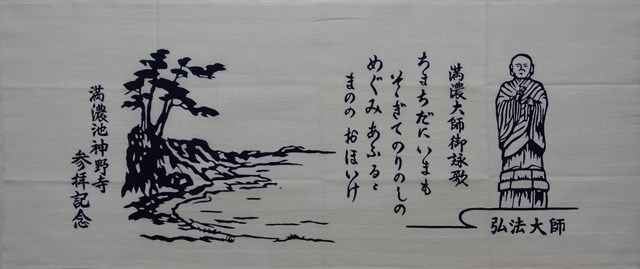 弘法大師
満濃大師御詠歌
ちまちだにいまも
そゝぎてのりのしの
めぐみあふるゝ
まのの おほいけ
満濃池神野寺
参拝記念